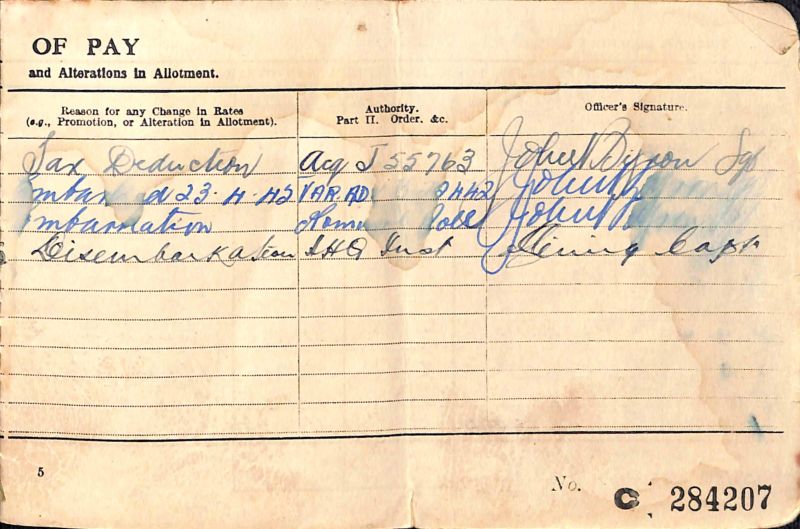 OF PAY
and Alterations in Allotment.
Reason for any Change in Rates (e.g., Promotion, or Alteration in Allotment).
Authority. Part II. Order, &c.
Officer's Signature.
Tax Deduction J 55763 John Sgt
23.4.42 2442 John
mbarnation John
Disembarkation LHQ Inst Capt
5
No. C 284207